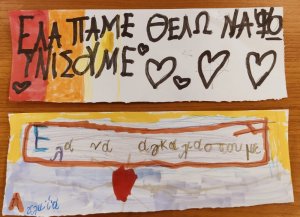 ΕΛΑ ΠΑΜΕ ΘΕΛΩ ΝΑ
ΨΝΙΣΟΥΜΕ
Ελα να αγκαλιαστουμε